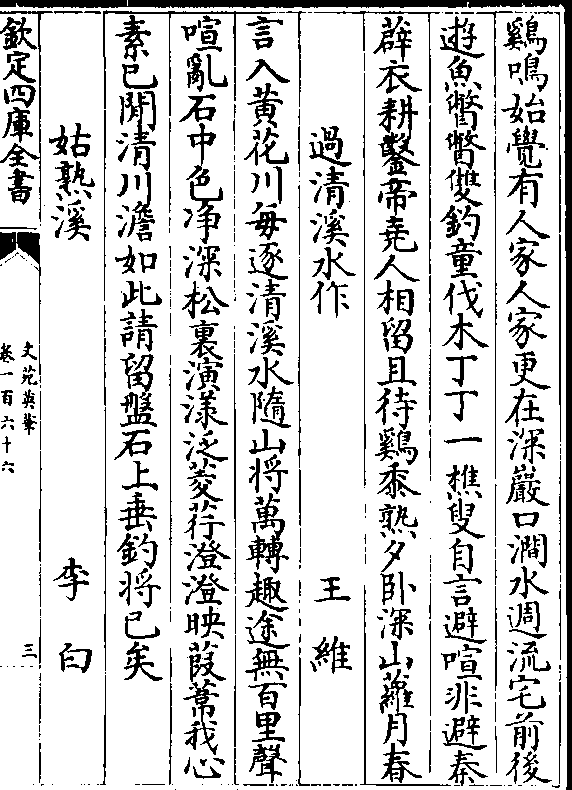 鷄鳴始覺有人家人家更在深巖口澗水週流宅前後
逰魚瞥瞥雙釣童伐木丁丁一樵叟自言避喧非避秦
薜衣耕鑿帝堯人相留且待鷄黍熟夕卧深山蘿月春
過清溪水作 王維
言入黄花川每逐清溪水隨山將萬轉趣途無百里聲
喧亂石中色净深松裏演漾泛菱荇澄澄映葭葦我心
素已閒清川澹如此請留盤石上垂釣将已矣
姑熟溪 李白
欽定四庫全書
文苑英華
卷一百六十六
三